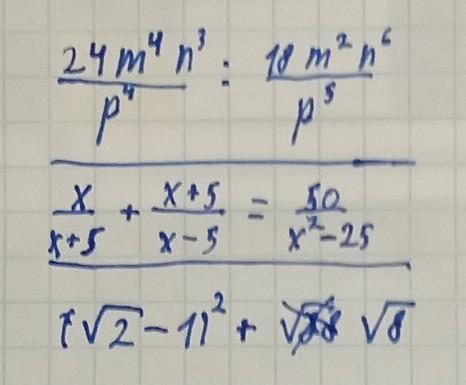 24m⁴n³/p⁴ : 18m²n⁶/p⁵
x/(x+5) + (x+5)/(x-5) = 50/(x²-25)
(√2-1)² + √8